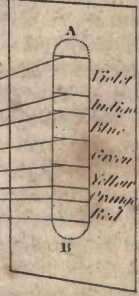 A
Violet
Indigo
Blue
Green
Yellow
Orange
Red
B